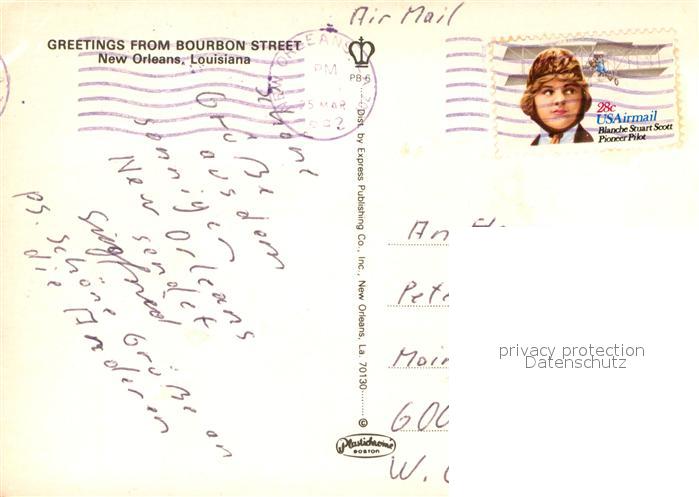 Air Mail
GREETINGS FROM BOURBON STREET
New Orleans, Louisiana
NEW ORLEANS
PM
25 MAR
PB-6
28c
USAirmail
Blanche Stuart Scott
Pioneer Pilot
Schöne
Grüße
aus dem
sonnigen
New Orleans
sendet
Siegfried
ps. schöne Grüße an
die Anderen
Dist. by Express Publishing Co., Inc., New Orleans, La. 70130
©
Plastichrome
BOSTON
An
Pete
Main
600
W.
privacy protection
Datenschutz